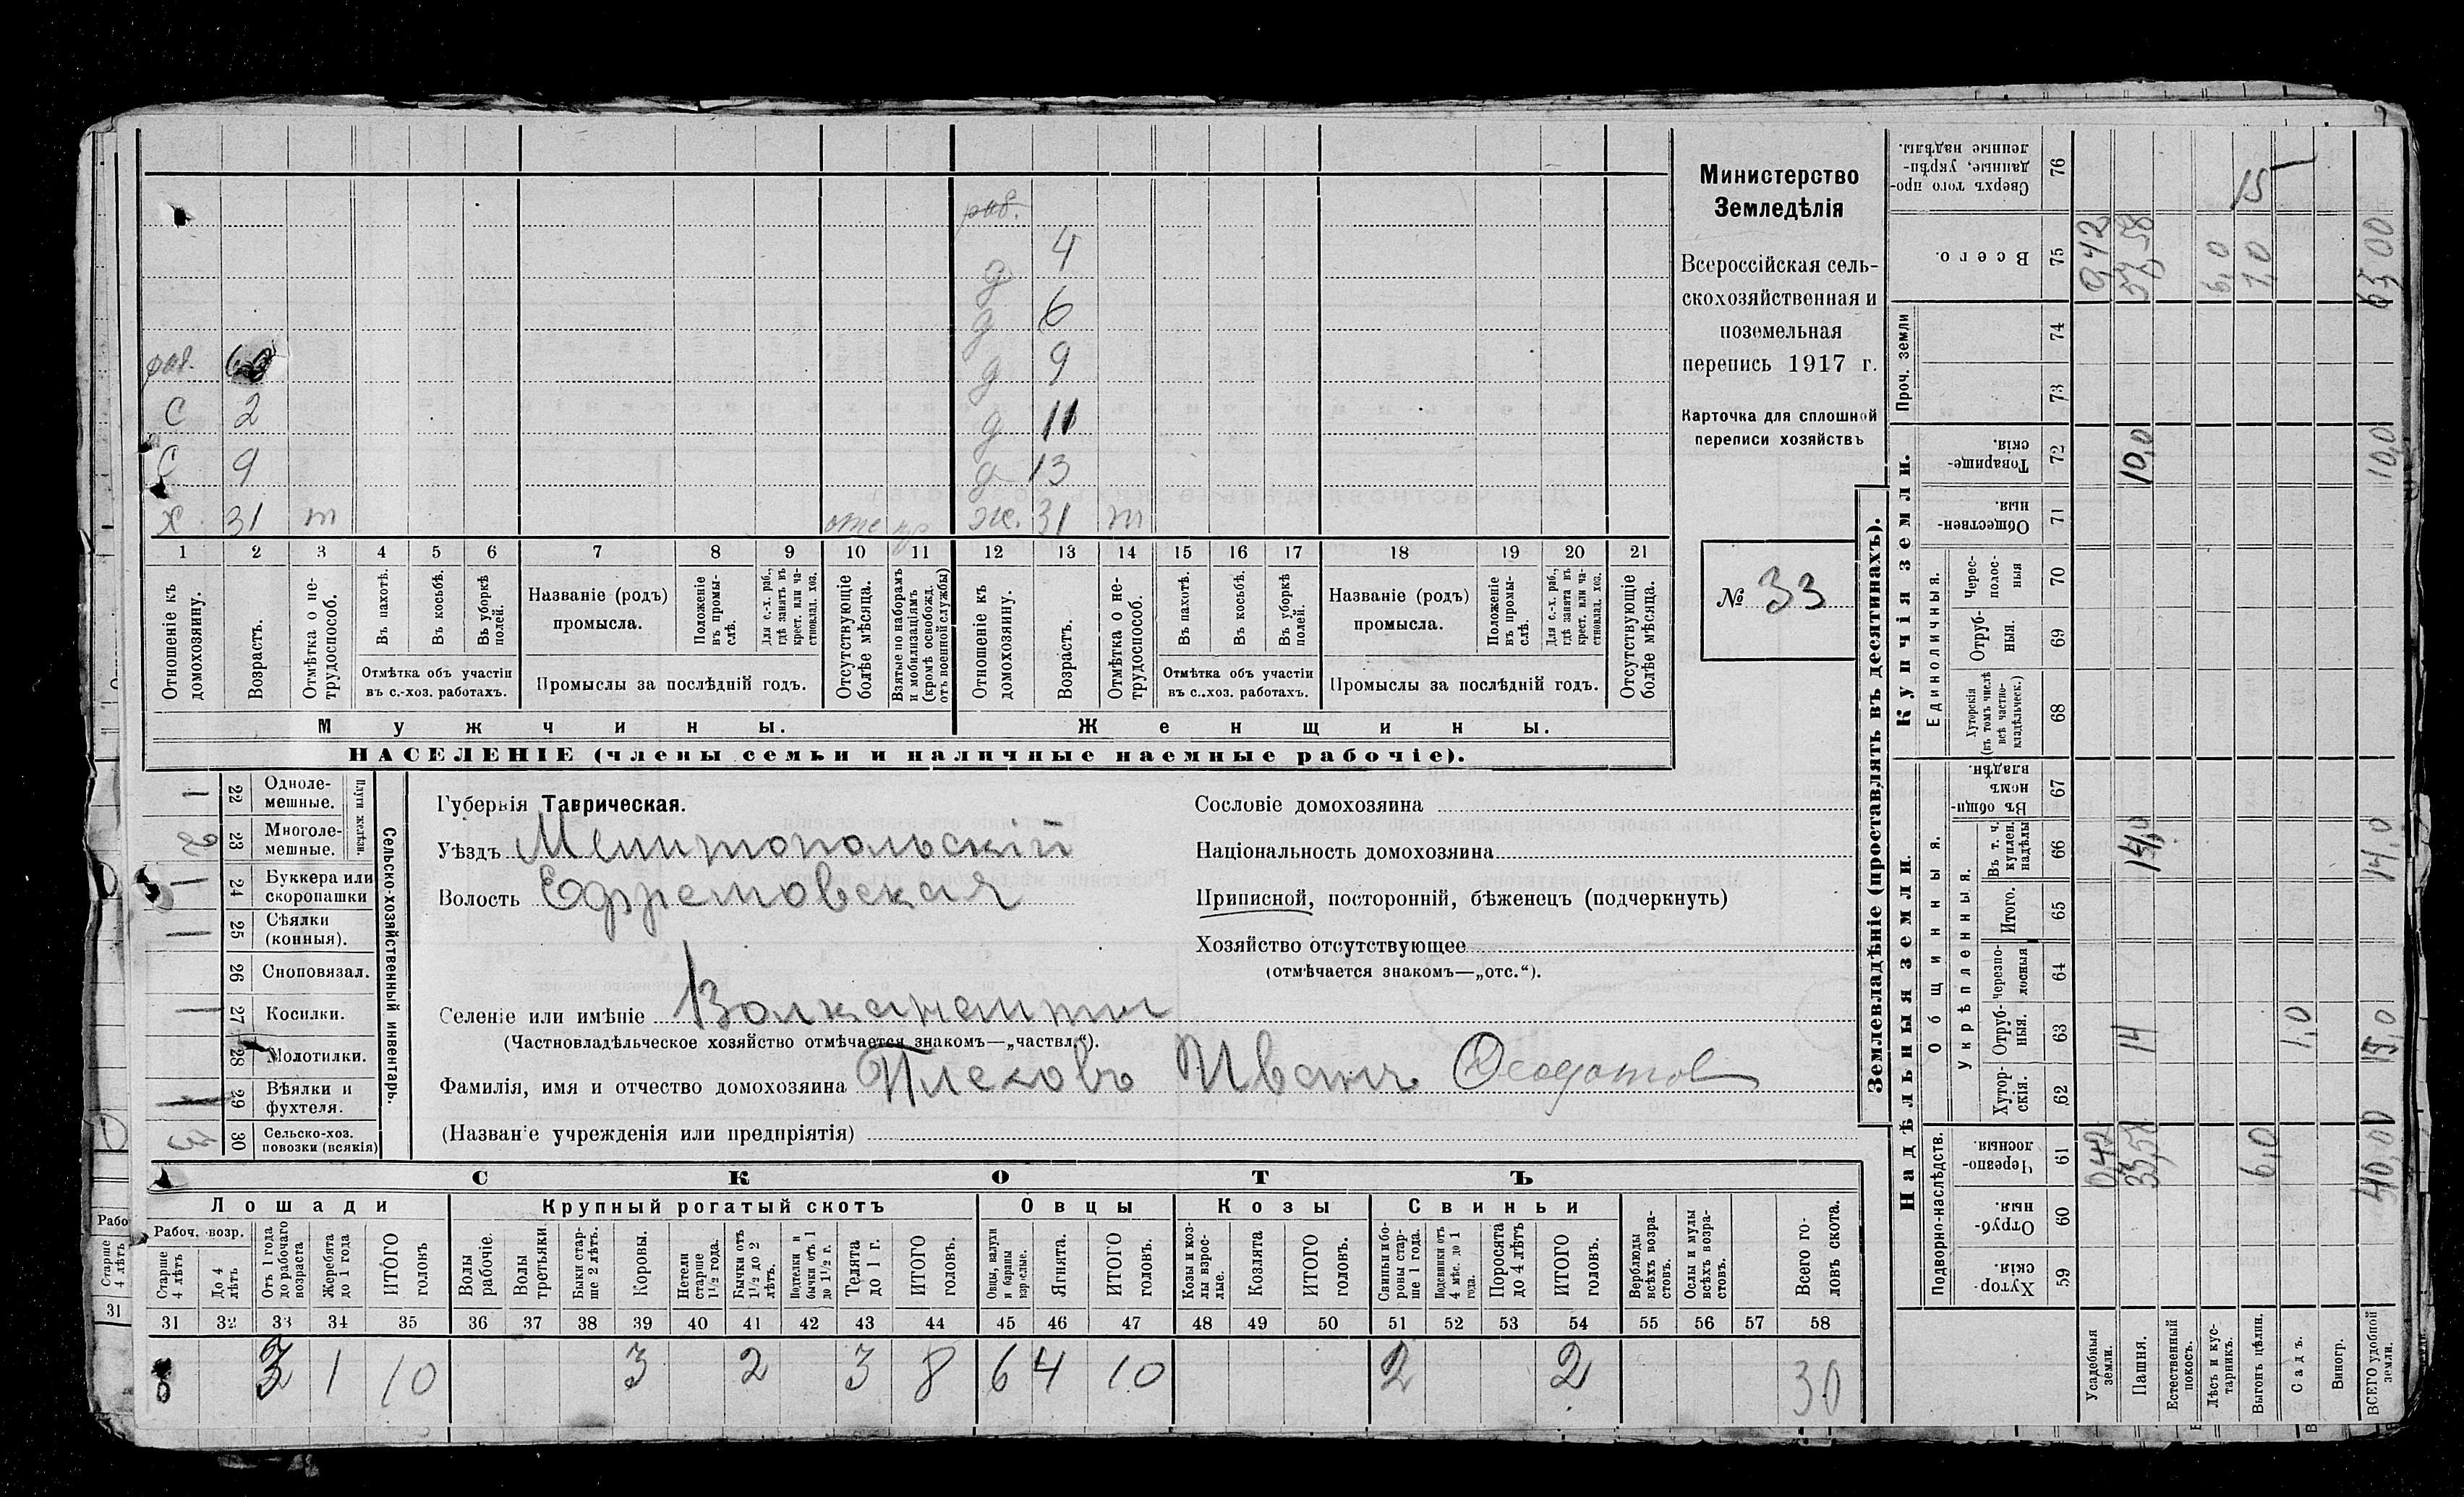 раб.
4
д
6
д
раб. 60 д 9
С 2 д 11
С 9 д 13
Х 31 т ж. 31 т
1 2 3 4 5 6 7 8 9 10 11 12 13 14 15 16 17 18 19 20 21
Отношеніе къ домохозяину.
Возрастъ.
Отмѣтка о не-трудоспособ.
Въ пахотѣ.
Въ косьбѣ.
Въ уборкѣ полей.
Отмѣтка объ участіи
въ с.-хоз. работахъ.
Названіе (родъ)
промысла.
Положеніе въ промы-слѣ.
Для с.-х. раб., гдѣ занятъ въ крест. или ча-стновлад. хоз.
Промыслы за послѣдній годъ.
Отсутствующіе болѣе мѣсяца.
Взятые по наборамъ и мобилизаціямъ (кромѣ освобожд. отъ военной службы)
Отношеніе къ домохозяину.
Возрастъ.
Отмѣтка о не-трудоспособ.
Въ пахотѣ.
Въ косьбѣ.
Въ уборкѣ полей.
Отмѣтка объ участіи
въ с..хоз. работахъ.
Названіе (родъ)
промысла.
Положеніе въ промы-слѣ.
Для с.-х. раб., гдѣ занята въ крест. или ча-стновлад. хоз.
Промыслы за послѣдній годъ.
Отсутствующіе болѣе мѣсяца.
Мужчины.
Женщины.
НАСЕЛЕНІЕ (члены семьи и наличные наемные рабочіе).
Министерство
Земледѣлія
Всероссійская сель-
скохозяйственная и
поземельная
перепись 1917 г.
Карточка для сплошной
переписи хозяйствъ
№ 33
Сельско-хозяйственный инвентарь.
Плуги желѣзн.
1 22 Одноле-мешные.
2 23 Многоле-мешные.
1 24 Буккера или скоропашки
1 25 Сѣялки (конныя).
26 Сноповязал.
1 27 Косилки.
28 Молотилки.
1 29 Вѣялки и фухтеля.
3 30 Сельско-хоз. повозки (всякія)
Губернія Таврическая.
Уѣздъ Мелитопольскій
Волость Ефремовская
Селеніе или имѣніе
(Частновладѣльческое хозяйство отмѣчается знакомъ—„частвл.“).
Фамилія, имя и отчество домохозяина Плеховъ Иванъ Феодотов
(Названіе учрежденія или предпріятія)
Сословіе домохозяина
Національность домохозяина
Приписной, посторонній, бѣженецъ (подчеркнуть)
Хозяйство отсутствующее
(отмѣчается знакомъ—„отс.“).
СКОТЪ
Лошади
Рабоч. возр.
Старше 4 лѣтъ
До 4 лѣтъ
Отъ 1 года до рабочаго возраста
Жеребята до 1 года
ИТОГО головъ
Крупный рогатый скотъ
Волы рабочіе.
Волы третьяки.
Быки стар-ше 2 лѣтъ.
Коровы.
Нетели старше 1½ года.
Бычки отъ 1½ до 2 лѣтъ.
Нетелки и бычки отъ 1 до 1½ г.
Телята до 1 г.
ИТОГО головъ.
Овцы
Овцы, валухи и бараны взрослые.
Ягнята.
ИТОГО головъ.
Козы
Козы и коз-лы взрос-лые.
Козлята
ИТОГО головъ.
Свиньи
Свиньи и бо-ровы стар-ше 1 года.
Подсвинки отъ 4 мѣс. до 1 года.
Поросята до 4 лѣтъ
ИТОГО головъ.
Верблюды всѣхъ возра-стовъ.
Ослы и мулы всѣхъ возра-стовъ.
Всего го-ловъ скота.
31 32 33 34 35 36 37 38 39 40 41 42 43 44 45 46 47 48 49 50 51 52 53 54 55 56 57 58
3 1 10 3 2 3 8 6 4 10 2 2 30
Рабо
Старше 4 лѣтъ
31
Землевладѣніе (проставлять въ десятинахъ).
Надѣльныя земли.
Купчія земли.
Проч. земли
Подворно-наслѣдств.
Общинныя.
Укрѣпленныя.
Единоличныя.
Хутор-скія. 59
Отруб-ныя. 60
Черезпо-лосныя 61
Хутор-скія. 62
Отруб-ныя. 63
Черезпо-лосныя 64
Итого. 65
Въ т. ч. куплен. надѣлы 66
Въ общин-номъ владѣн. 67
Хуторскія (въ томъ числѣ всѣ частно-владѣльческ.) 68
Отруб-ныя. 69
Черес-полос-ныя 70
Обществен-ныя. 71
Товарище-скія. 72
73
74
Всего. 75
Сверхъ того про-данные, укрѣп-ленные надѣлы. 76
Усадебныя земли. 0,42 0,42
Пашня. 33,58 14 14,0 10,0 57,58
Естественный покосъ.
Лѣсъ и кус-тарникъ. 6,0
Выгонъ цѣлин. 6,0 1,0 15
Садъ. 1,0
Виногр.
ВСЕГО удобной земли. 40,00 15,0 14,0 10,0 65,00